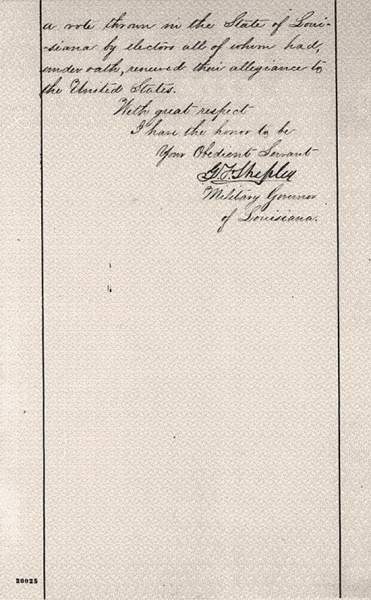 a vote thrown in the State of Loui-
-siana by electors all of whom had,
under oath, renewed their allegiance to
the United States.
With great respect
I have the honor to be
Your Obedient Servant
G. F. Shepley
Military Governor
of Louisiana.
20025